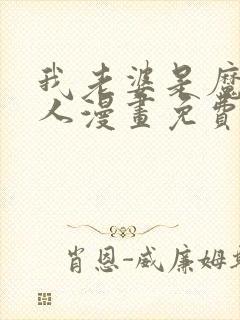 我老婆是魔
人漫畫免費
肖恩-威廉姆斯